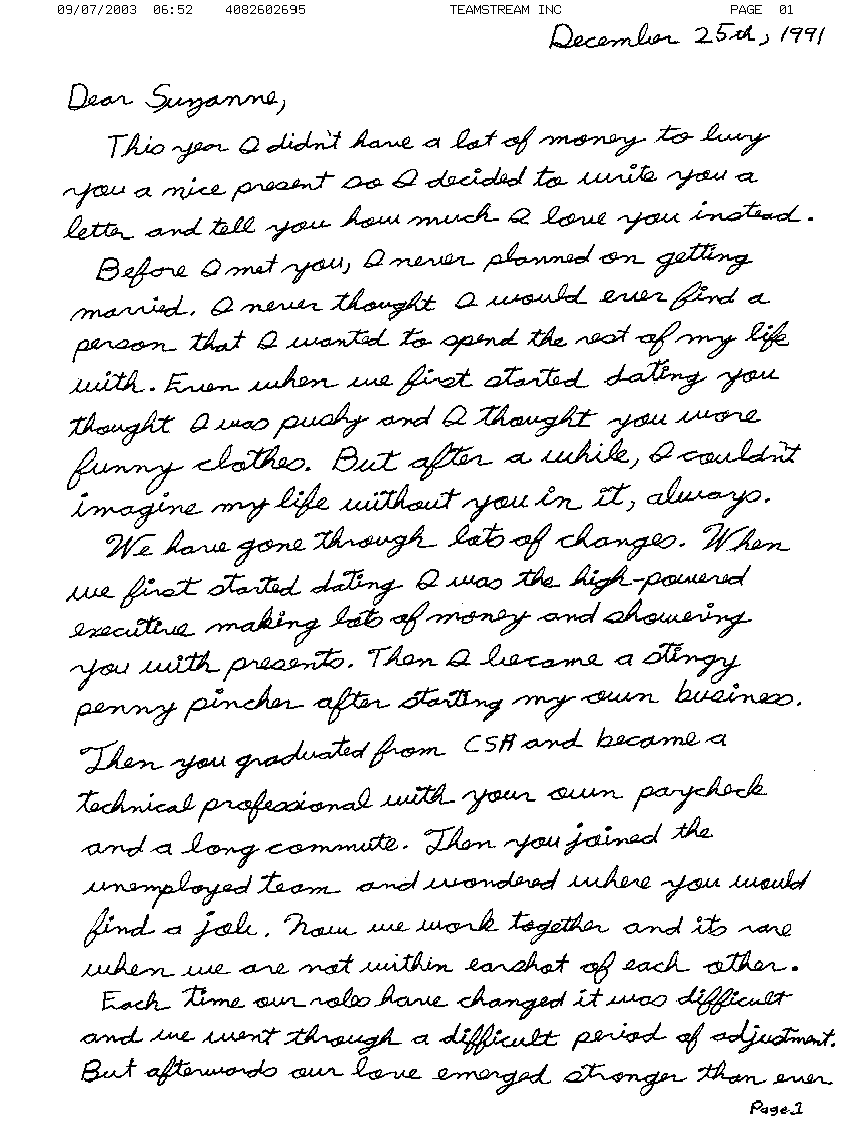 09/07/2003 06:52 4082602695 TEAMSTREAM INC PAGE 01
December 25th, 1991
Dear Suzanne,
This year I didn't have a lot of money to buy
you a nice present so I decided to write you a
letter and tell you how much I love you instead.
Before I met you, I never planned on getting
married. I never thought I would ever find a
person that I wanted to spend the rest of my life
with. Even when we first started dating you
thought I was pushy and I thought you wore
funny clothes. But after a while, I couldn't
imagine my life without you in it, always.
We have gone through lots of changes. When
we first started dating I was the high-powered
executive making lots of money and showering
you with presents. Then I became a stingy
penny pincher after starting my own business.
Then you graduated from CSA and became a
technical professional with your own paycheck
and a long commute. Then you joined the
unemployed team and wondered where you would
find a job. Now we work together and its rare
when we are not within earshot of each other.
Each time our roles have changed it was difficult
and we went through a difficult period of adjustment.
But afterwards our love emerged stronger than ever
Page 1